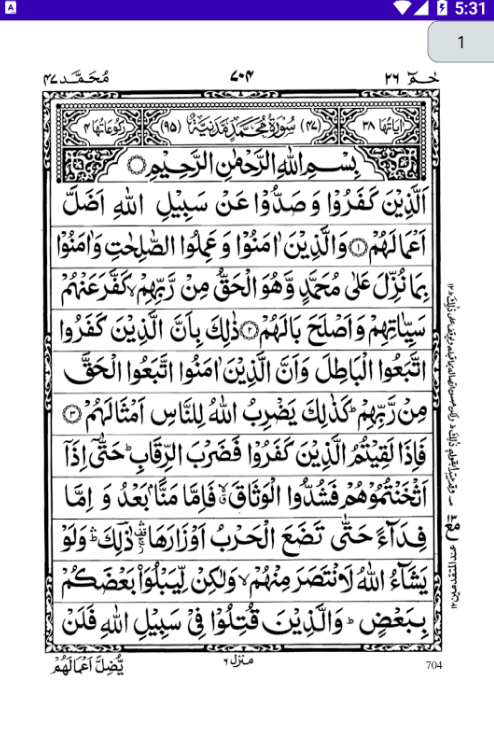 5:31
1
حٰمٓ ٢٦
٧٠٤
مُحَمَّد ٤٧
اٰیَاتُهَا ٣٨
(٤٧) سُوْرَةُ مُحَمَّدٍ مَّدَنِيَّةٌ (٩٥)
رُكُوْعَاتُهَا ٤
بِسْمِ اللهِ الرَّحْمٰنِ الرَّحِيْمِ
اَلَّذِيْنَ كَفَرُوْا وَ صَدُّوْا عَنْ سَبِيْلِ اللهِ اَضَلَّ
اَعْمَالَهُمْ ١ وَالَّذِيْنَ اٰمَنُوْا وَ عَمِلُوا الصّٰلِحٰتِ وَاٰمَنُوْا
بِمَا نُزِّلَ عَلٰى مُحَمَّدٍ وَّهُوَ الْحَقُّ مِنْ رَّبِّهِمْ ۙ كَفَّرَ عَنْهُمْ
سَيِّاٰتِهِمْ وَاَصْلَحَ بَالَهُمْ ٢ ذٰلِكَ بِاَنَّ الَّذِيْنَ كَفَرُوا
اتَّبَعُوا الْبَاطِلَ وَاَنَّ الَّذِيْنَ اٰمَنُوا اتَّبَعُوا الْحَقَّ
مِنْ رَّبِّهِمْ ؕ كَذٰلِكَ يَضْرِبُ اللهُ لِلنَّاسِ اَمْثَالَهُمْ ٣
فَاِذَا لَقِيْتُمُ الَّذِيْنَ كَفَرُوْا فَضَرْبَ الرِّقَابِ ؕ حَتّٰٓى اِذَآ
اَثْخَنْتُمُوْهُمْ فَشُدُّوا الْوَثَاقَ ۙ فَاِمَّا مَنًّۢا بَعْدُ وَ اِمَّا
فِدَآءً حَتّٰى تَضَعَ الْحَرْبُ اَوْزَارَهَا ۛ ذٰلِكَ ۛ وَلَوْ
يَشَآءُ اللهُ لَانْتَصَرَ مِنْهُمْ ۙ وَلٰكِنْ لِّيَبْلُوَا۠ بَعْضَكُمْ
بِبَعْضٍ ؕ وَالَّذِيْنَ قُتِلُوْا فِيْ سَبِيْلِ اللهِ فَلَنْ
يُّضِلَّ اَعْمَالَهُمْ
منزل ٦
704